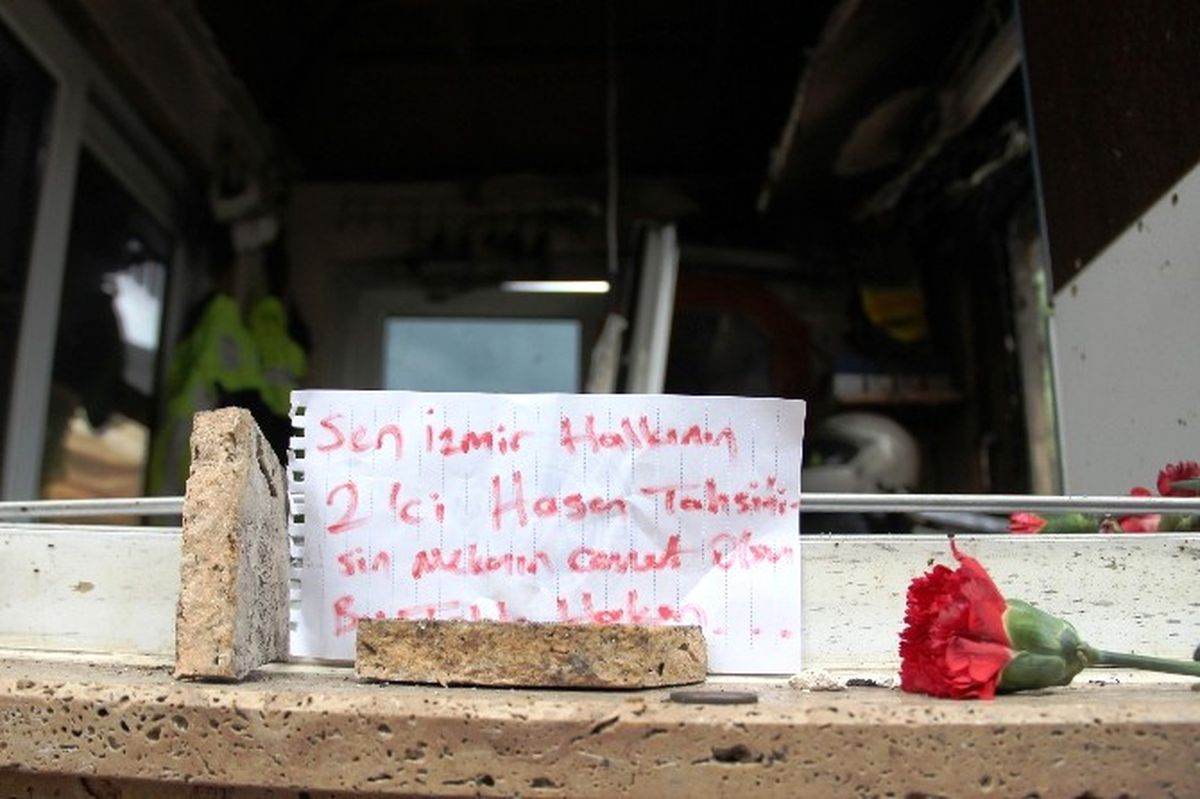 Sen izmir Halkının
2 ci Hasan Tahsini-
sin Mekanın cennet Olsun